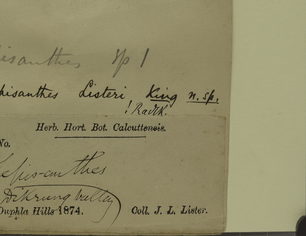 isanthes sp 1
pisanthes Listeri King n. sp.
! Radlk.
Herb. Hort. Bot. Calcuttensis.
No.
Lepisanthes
Dikrung valley
Duphla Hills 1874. Coll. J. L. Lister.